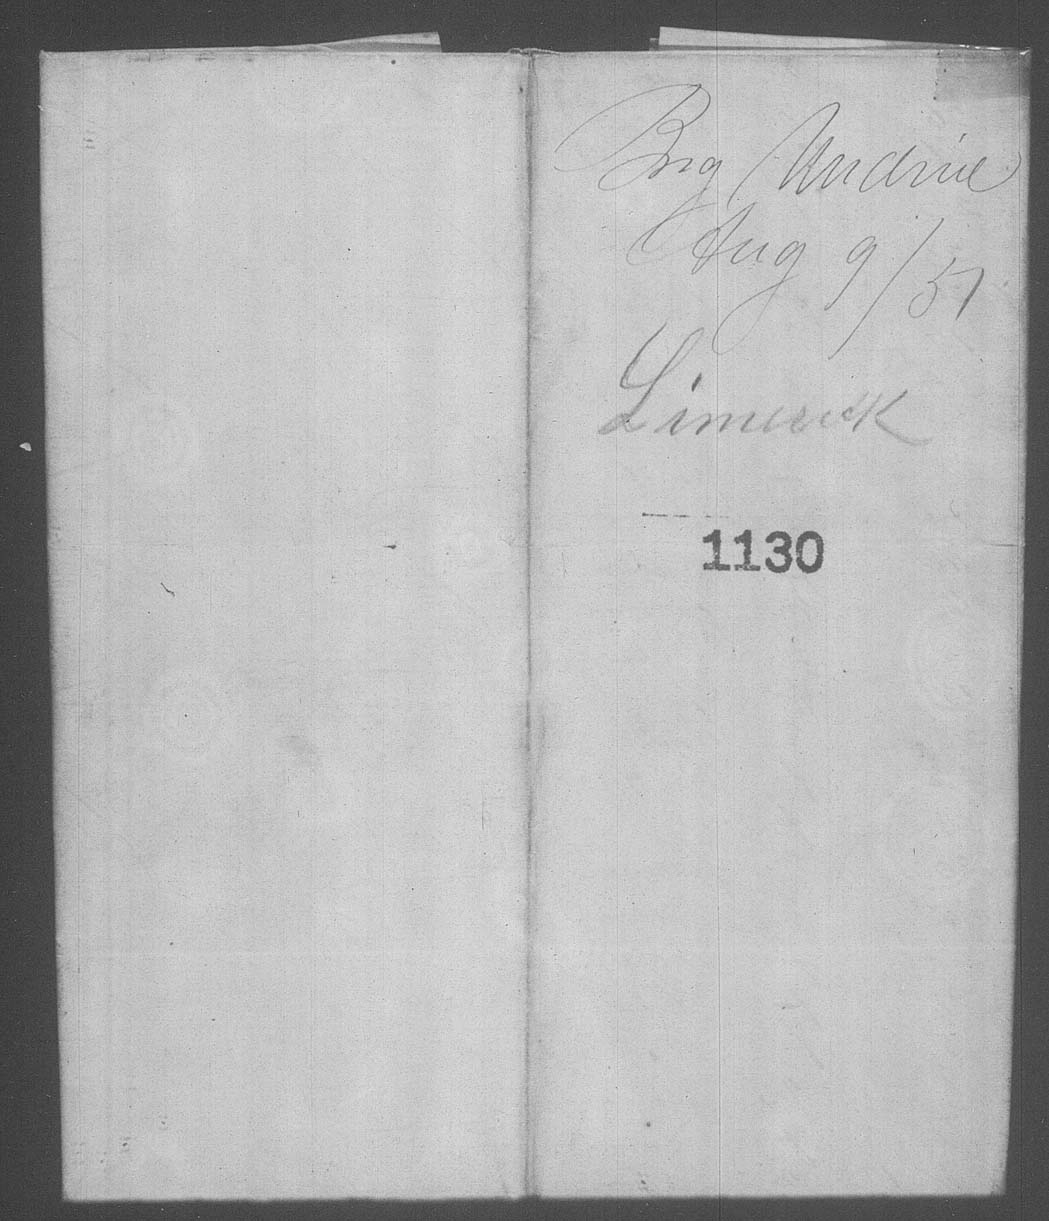 Brig Undine
Aug 9/51
Limerick
1130